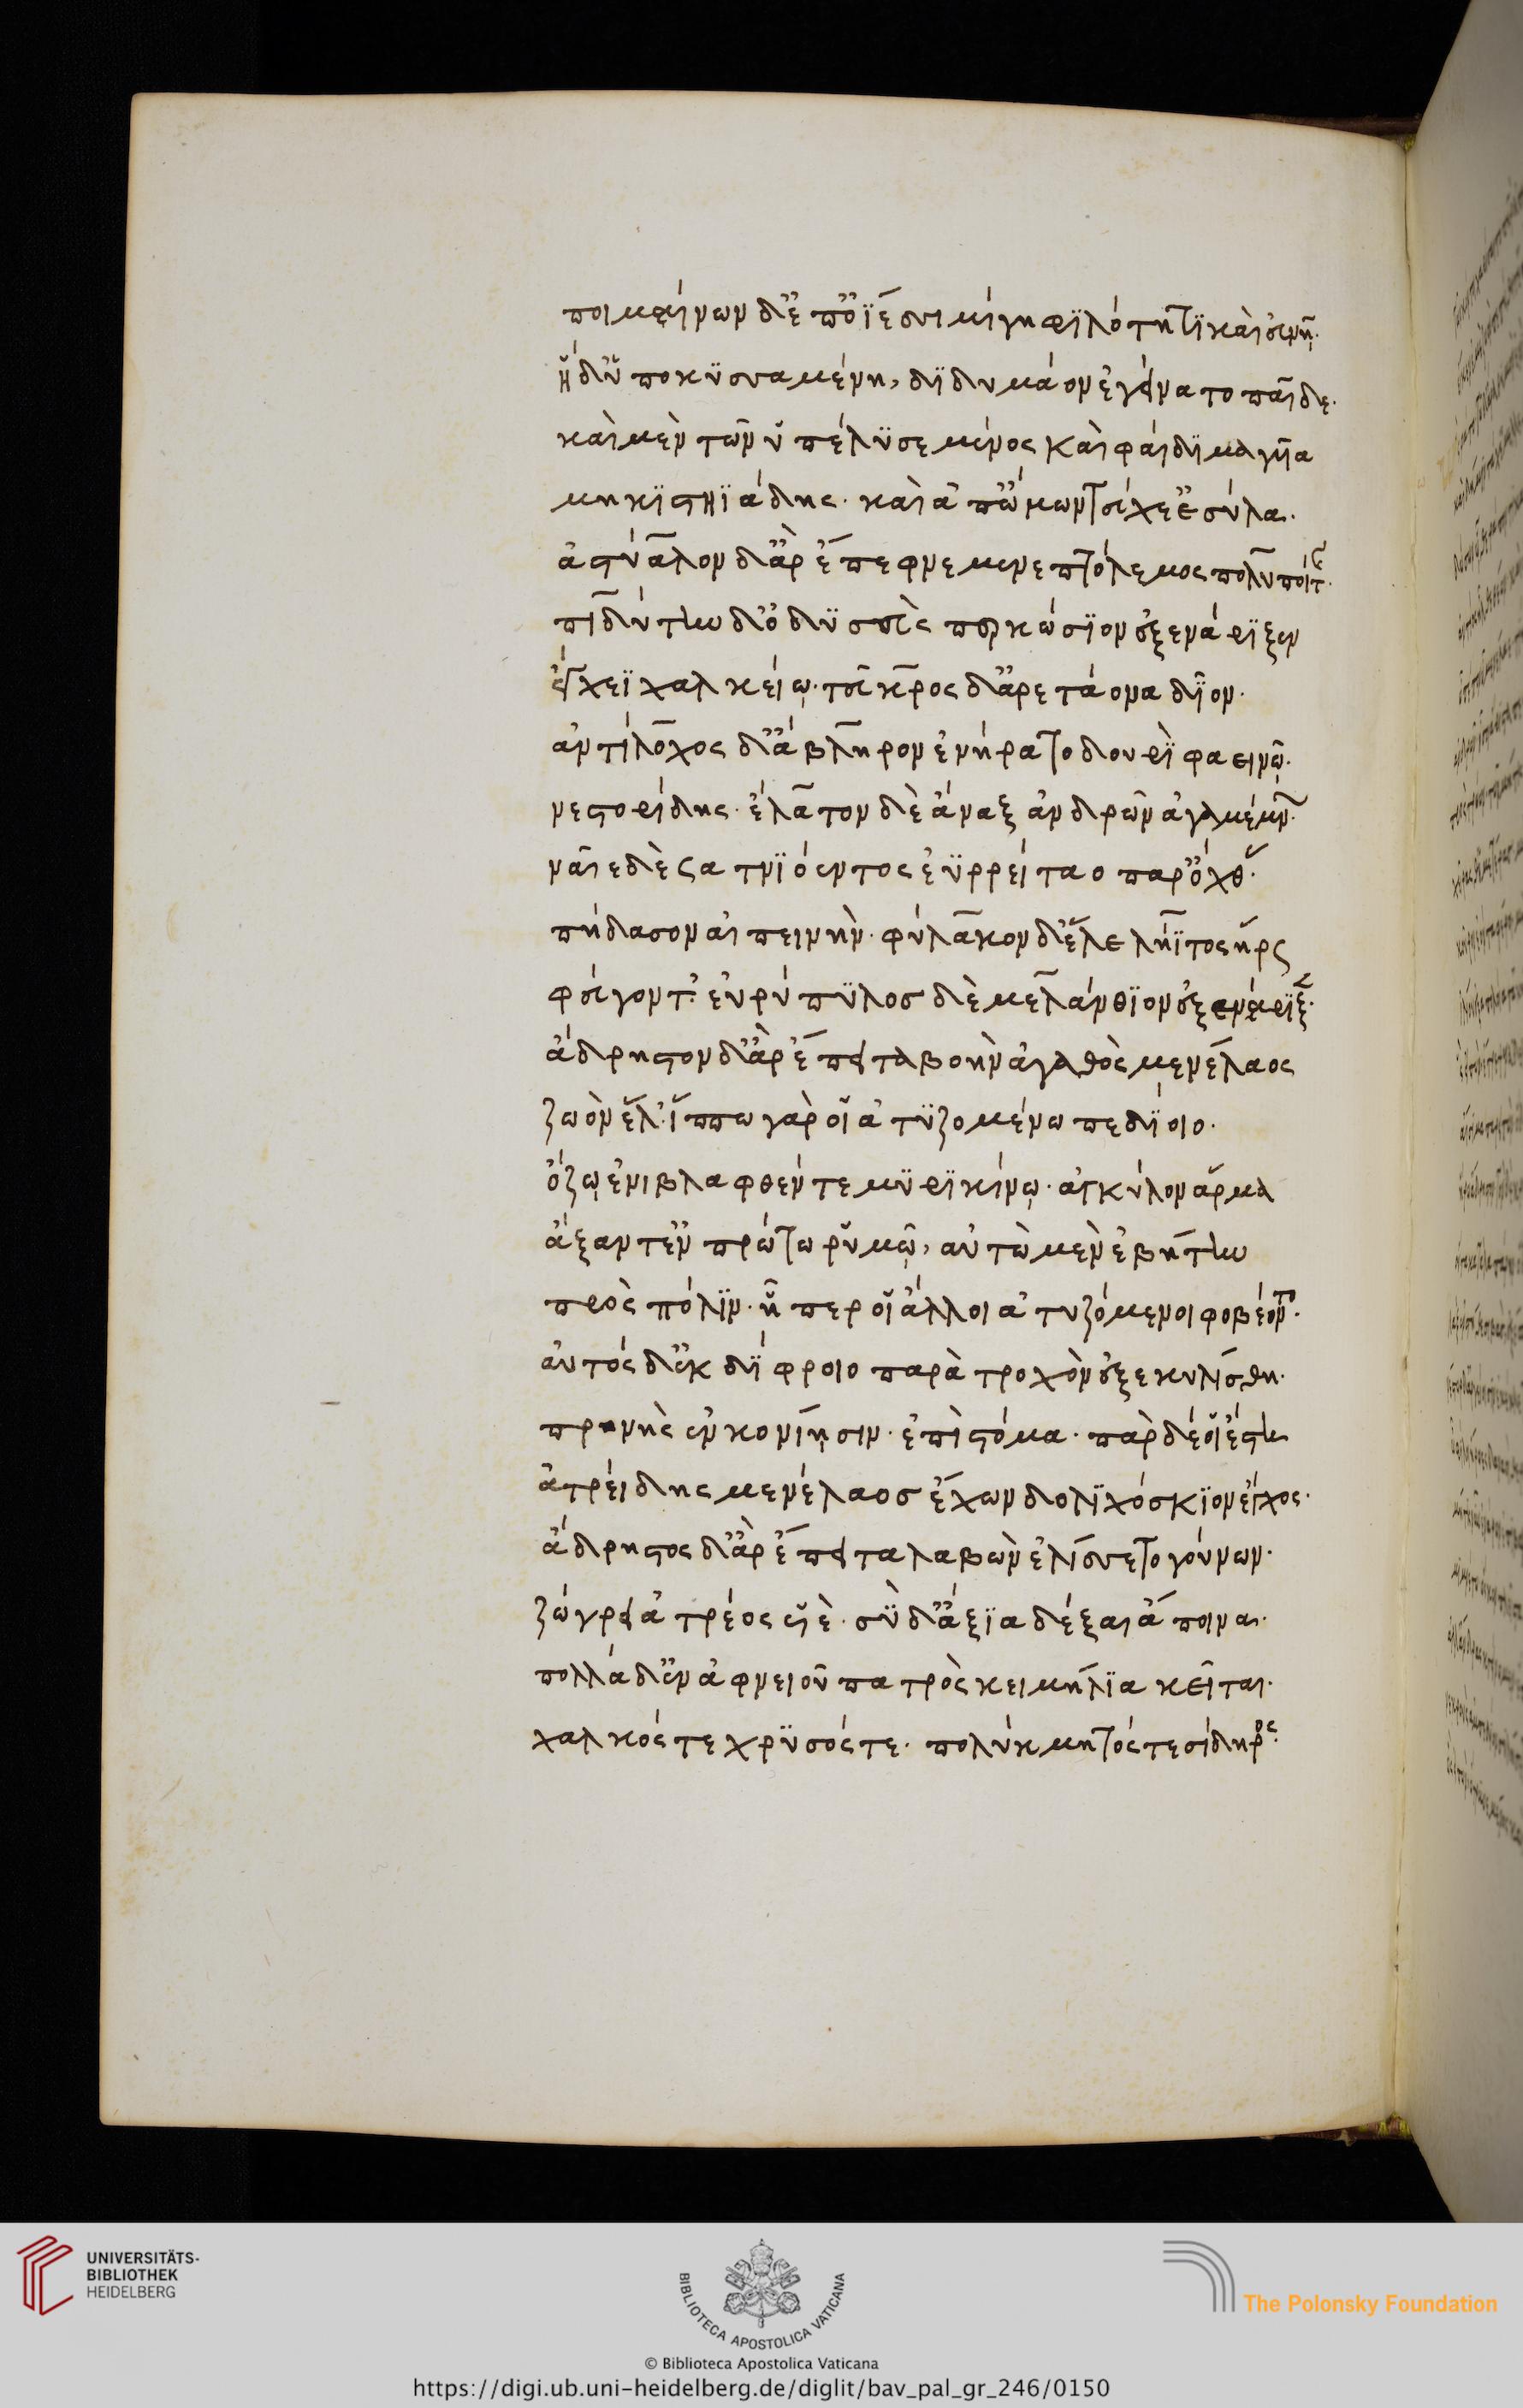 ποιμαίνων δ' ἐπ' ὄϊεσσι μίγη φιλότητι καὶ εὐνῇ·
ἡ δ' ὑποκυσαμένη, διδυμάονε γείνατο παῖδε·
καὶ μὲν τῶν ὑπέλυσε μένος καὶ φαίδιμα γυῖα
μηκιστηϊάδης· καὶ ἀπ' ὤμων τεύχε' ἐσύλα·
ἀστύαλον δ' ἄρ' ἔπεφνε μενεπτόλεμος πολυποίτης·
πιδύτην δ' ὀδυσσεὺς περκώσιον ἐξενάριξεν
ἔγχεϊ χαλκείῳ· τεῦκρος δ' ἀρετάονα δῖον·
ἀντίλοχος δ' ἄβληρον ἐνήρατο δουρὶ φαεινῷ·
νεστορίδης· ἔλατον δὲ ἄναξ ἀνδρῶν ἀγαμέμνων·
ναῖε δὲ σατνιόεντος ἐϋρρείταο παρ' ὄχθας·
πήδασον αἰπεινήν· φύλακον δ' ἕλε λήϊτος ἥρως
φεύγοντ'· εὐρύπυλος δὲ μελάνθιον ἐξενάριξε·
ἄδρηστον δ' ἄρ' ἔπειτα βοὴν ἀγαθὸς μενέλαος
ζωὸν ἕλ'· ἵππω γάρ οἱ ἀτυζομένω πεδίοιο·
ὄζῳ ἐνι βλαφθέντε μυρικίνῳ· ἀγκύλον ἅρμα
ἄξαντ' ἐν πρώτω ῥυμῷ, αὐτὼ μὲν ἐβήτην
πρὸς πόλιν· ᾗ περ οἱ ἄλλοι ἀτυζόμενοι φοβέοντο·
αὐτὸς δ' ἐκ δίφροιο παρὰ τροχὸν ἐξεκυλίσθη·
πρηνὴς ἐν κονίῃσιν· ἐπὶ στόμα· πὰρ δέ οἱ ἔστη
ἀτρείδης μενέλαος ἔχων δολιχόσκιον ἔγχος·
ἄδρηστος δ' ἄρ' ἔπειτα λαβὼν ἐλίσσετο γούνων·
ζώγρει ἀτρέος υἱὲ· σὺ δ' ἄξια δέξαι ἄποινα·
πολλὰ δ' ἐν ἀφνειοῦ πατρὸς κειμήλια κεῖται·
χαλκός τε χρυσός τε· πολύκμητός τε σίδηρος·
UNIVERSITÄTS-
BIBLIOTHEK
HEIDELBERG
BIBLIOTECA APOSTOLICA VATICANA
The Polonsky Foundation
© Biblioteca Apostolica Vaticana
https://digi.ub.uni-heidelberg.de/diglit/bav_pal_gr_246/0150